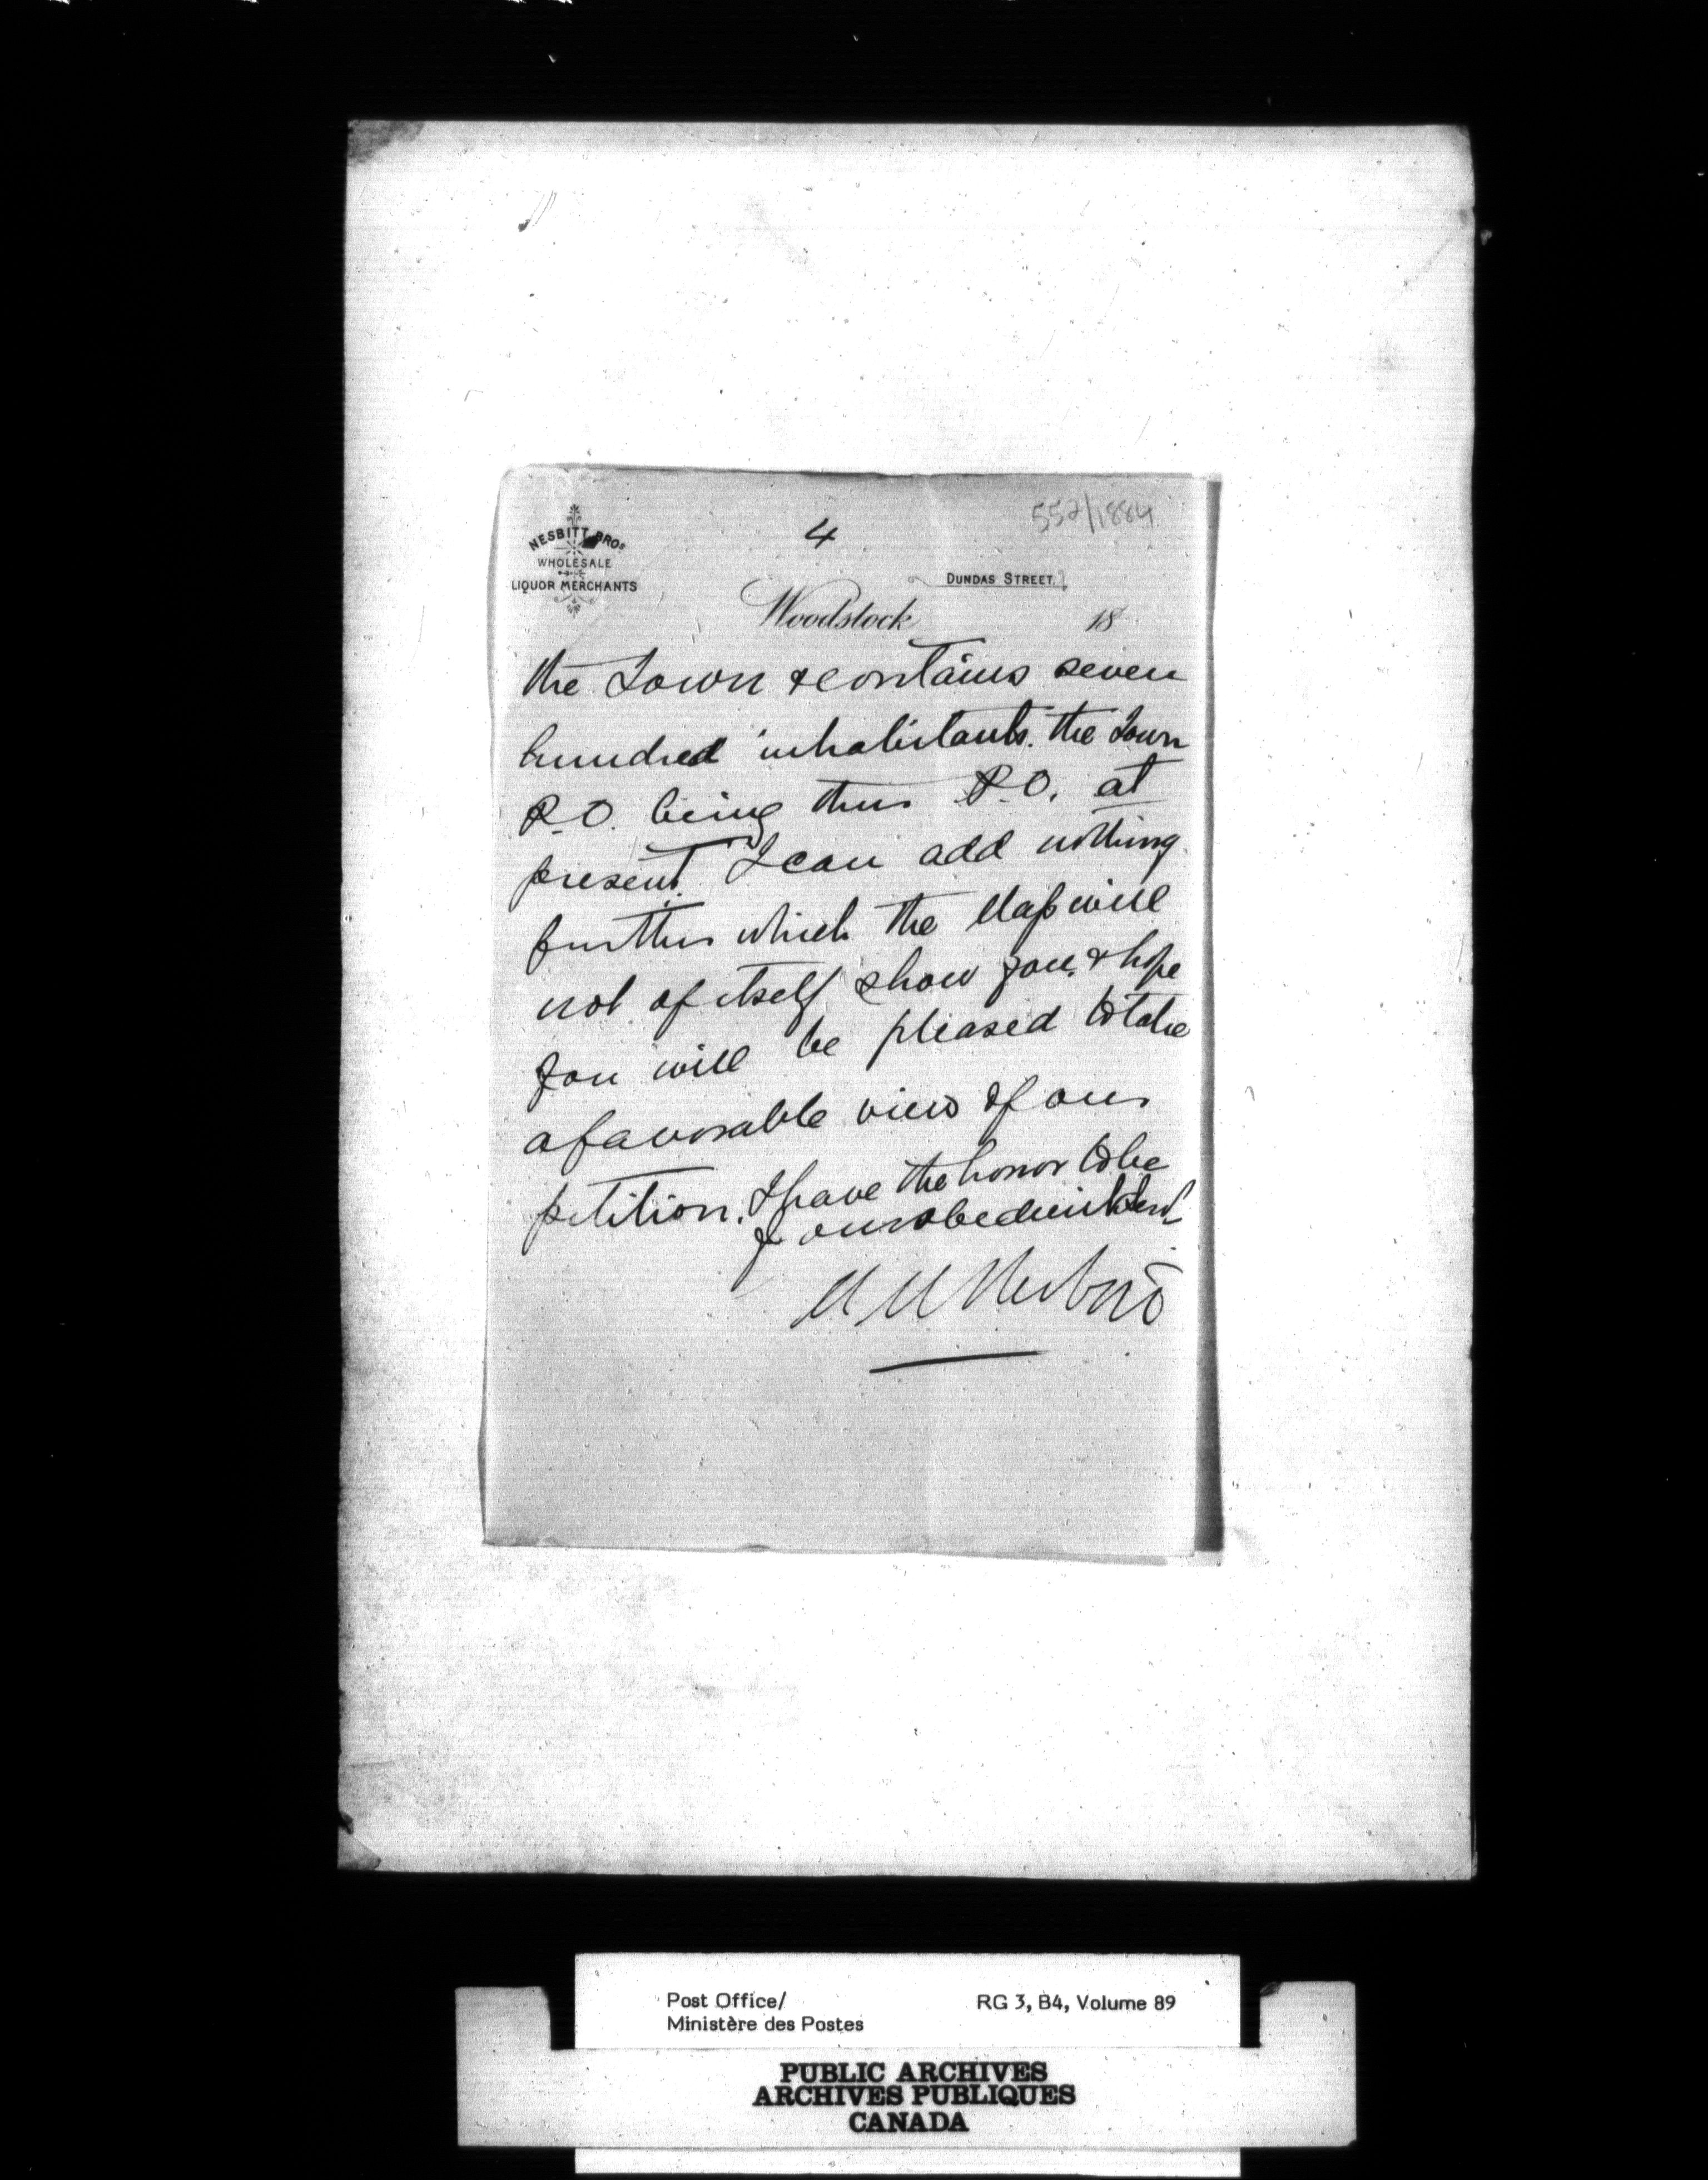 552/1884
4
NESBITT BROS
WHOLESALE
LIQUOR MERCHANTS
DUNDAS STREET,
Woodstock 18
the Town & contains seven
hundred inhabitants. the Town
P.O. being their P.O. at
present. I can add nothing
further which the Map will
not of itself show you, & hope
you will be pleased to take
a favorable view of our
petition. I have the honor to be
Your obedient Servt
Nesbitt
Post Office/
Ministère des Postes
RG 3, B4, Volume 89
PUBLIC ARCHIVES
ARCHIVES PUBLIQUES
CANADA